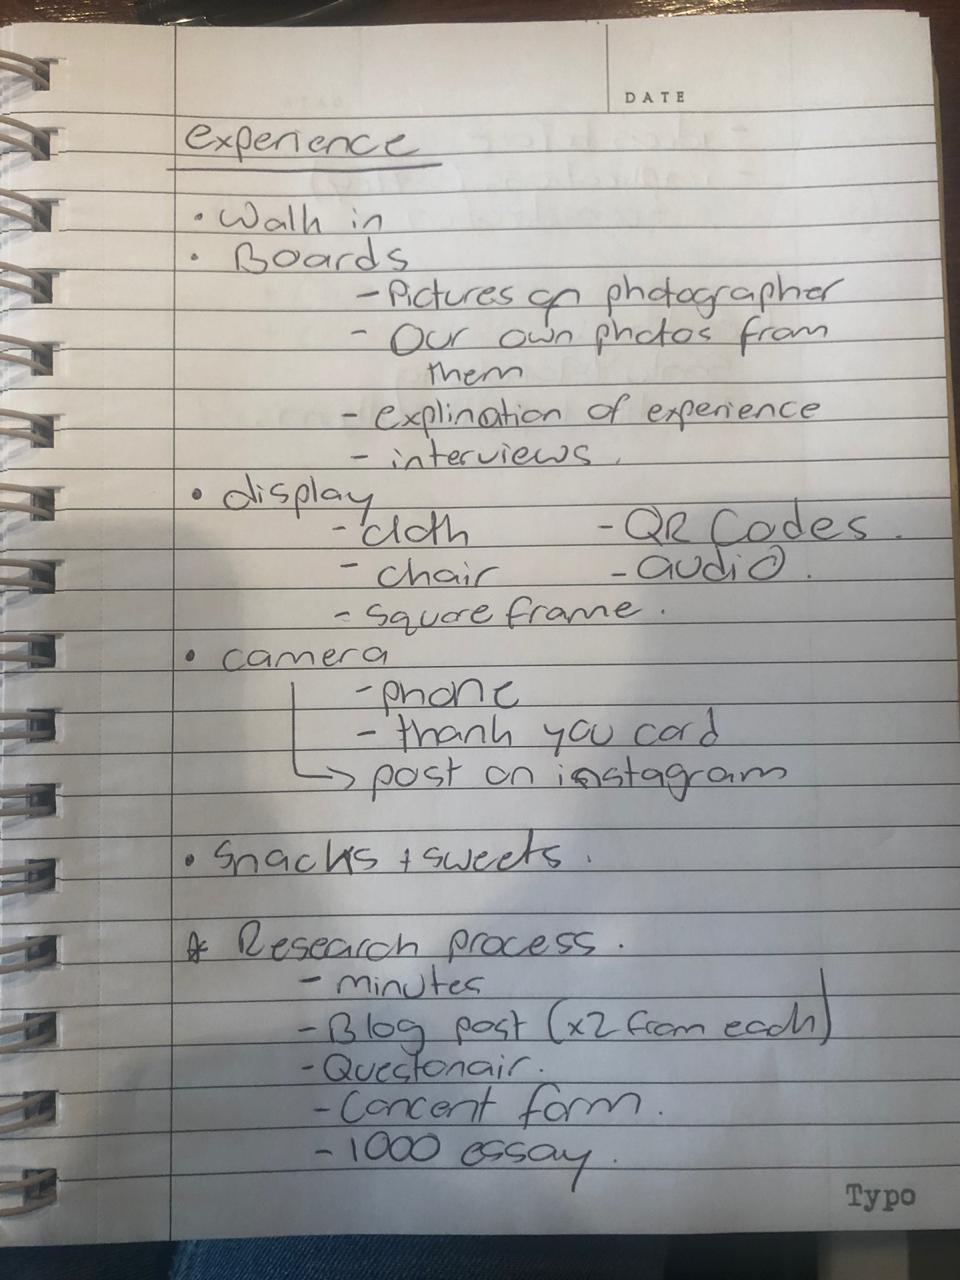 DATE
experience
• Walk in
• Boards
- Pictures on photographer
- Our own photos from
them
- explination of experience
- interviews.
• display
- cloth - QR Codes.
- chair - audio.
- square frame.
• camera
- phone
- thank you card
→ post on instagram
• Snacks + sweets.
* Research process.
- minutes
- Blog post (x2 from each)
- Questonair.
- Concent form.
- 1000 essay.
Typo